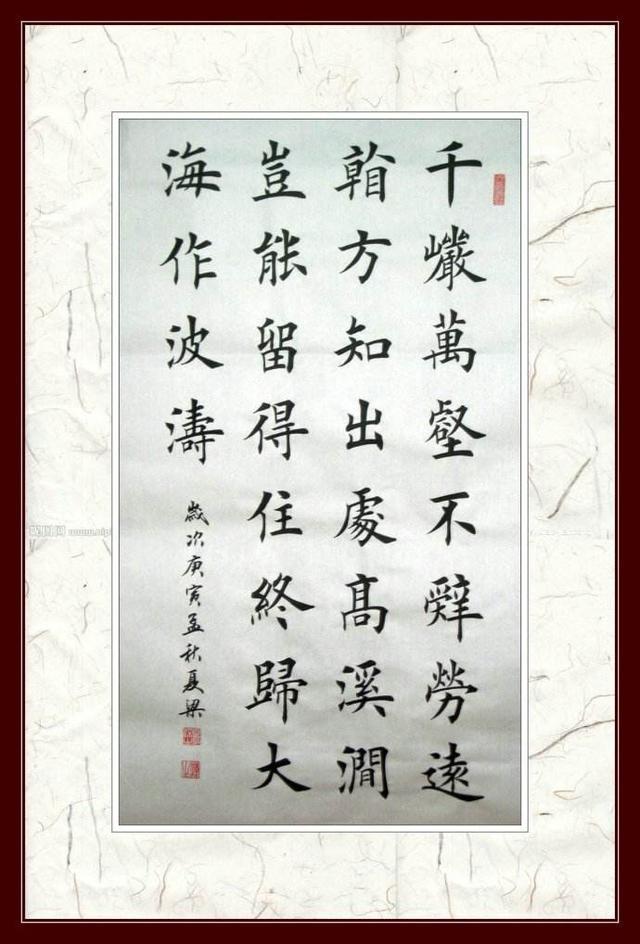 千巗萬壑不辭勞遠
看方知出處高溪澗
豈能留得住終歸大
海作波濤
歲次庚寅孟秋夏梁
昵图网 www.nip